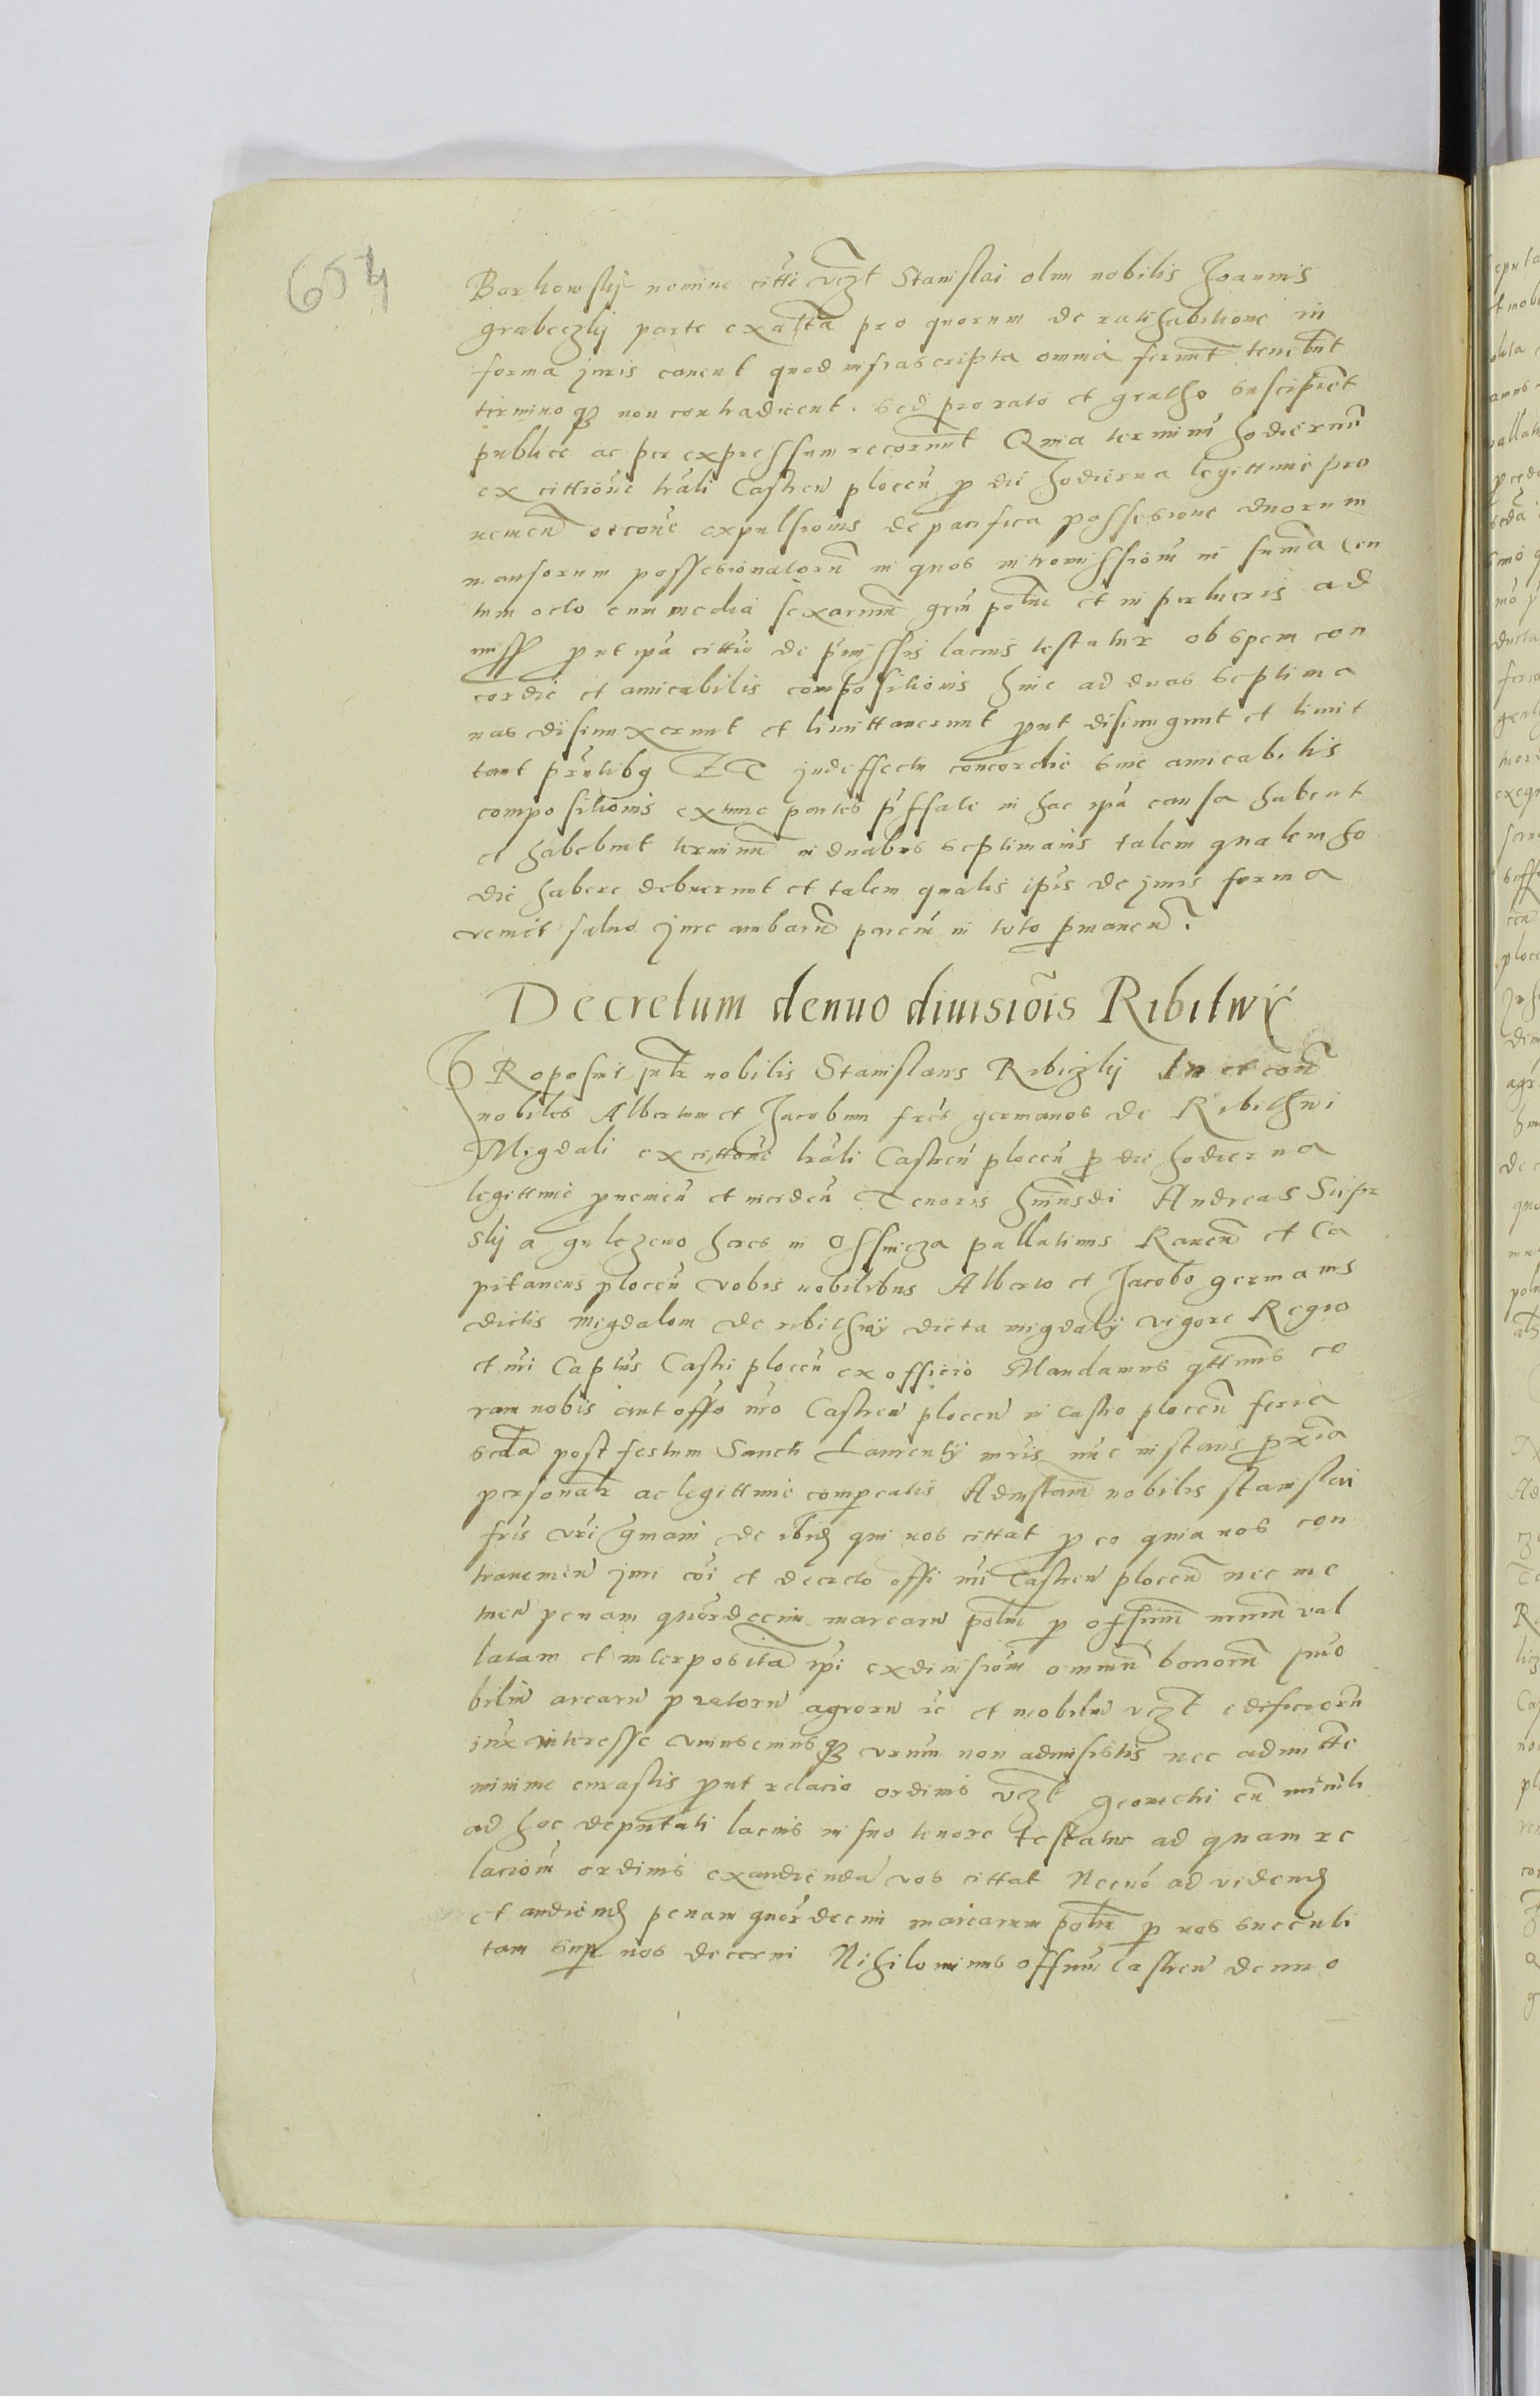 654
Barkowskj nomine citti vcz̃t Stanislai olim nobilis Joannis
grabeczkj parte ex a͠lta pro quorum de ratihabitione in
forma juris cauent quod infrascripta omnia firmit͠ teneb͠nt
terminoqȝ non contradicent. Sed prorato et gratho suscipie͠t
publice ac per expressum recorn͠nt Quia terminu͠ hodiernu͠
ex citt͠ione tr͠ali Castren͠ plocen͠ p die hodierna legittime pro
uenien͠ occo͠ne expulsionis de pacifica possesione duorum
mansorum possesionatoru͠ in quos intromissiom͠ in sum͠a Cen
tum octo cum media sexarum͠ gru͠ po͠lni et in perlucris ad
miss p̱ut ip͠a citt͠io de p͠missis lacius testatur ob spem con
cordie et amicabilis compositionis hinc ad duas septima
nas disiunxerunt et limittauerunt p̱ut disiungunt et limit
tant pr͠ntibȝ Et in deffectu concordie siue amicabilis
compositionis extunc partes p͠fate in hac ip͠a causa habent
et habebunt terminu͠ in duabus septimanis talem qualem ho
die habere debuerunt et talem qualis ip͠is de juris forma
venit saluo jure ambaru͠ parciu͠ in toto p̱manen͠.
Decretum denuo diuisio͠is Ribitwÿ
PRoposuit ju͠tr nobilis Stanislaus Ribiczkj In et con͠
nobiles Albertum et Jacobum fr͠es germanos de Ribithwi
Migdali ex citto͠ne tr͠ali Castren͠ plocen͠ p die hodierna
legittime p̱uenien͠ et inciden͠ Tenoris hui͠usdi Andreas Sierpz
skj a gulczewo heres in Ossnicza pallatinus Rauen͠ et Ca
pitaneus plocen͠ vobis nobilibus Alberto et Jacobo germanis
dictis Migdalom de ribithwÿ dicta migdalÿ vigore Regio
et n͠ri Cap͠tus Castri plocen͠ ex officio Mandamus q͠ttinus co
ram nobis a͠ut offo n͠ro Castren͠ plocen͠ in castro plocen͠ feria
sc͠da post festum Sancti Laurentÿ m͠ris nu͠c instans p̱xi͠a
personal͠r ac legittime compeatis Ad inst͠am nobilis stanislai
fr͠is v͠ri g͠mani de ibid̃ qui uos cittat p eo quia uos con
trauenien͠ juri co͠i et decreto offi n͠ri Castren͠ plocen͠ nec me
tuen͠ penam quo͠rdecim marcaru͠ po͠lni p offium͠ n͠rum val
latam et interpositam͠ ip͠i ex diuisiom͠ omniu͠ bonoru͠ jmo
biliu͠ arearu͠ pratoru͠ agroru͠ ec et mobiliu͠ vcz̃t edificioru͠
jux͠ interesse vniuscuiusqȝ vrum͠ non admisistis nec admitt͠e
minime curastis p̱ut relacio ordinis vcz̃t geometri cu͠ min͠rli
ad hoc deputati lacius in suo tenore testatur ad quam re
laciom͠ ordinis exaudienda͠ vos cittat Necno͠ ad videnḑ
et audienḑ penam quo͠rdecim marcarum po͠lni p uos succubi
tam sup̱ uos decerni Nihilominus offium͠ castren͠ denuo